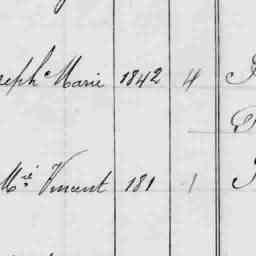 seph Marie 1842 4
Mie Vincent 181 1